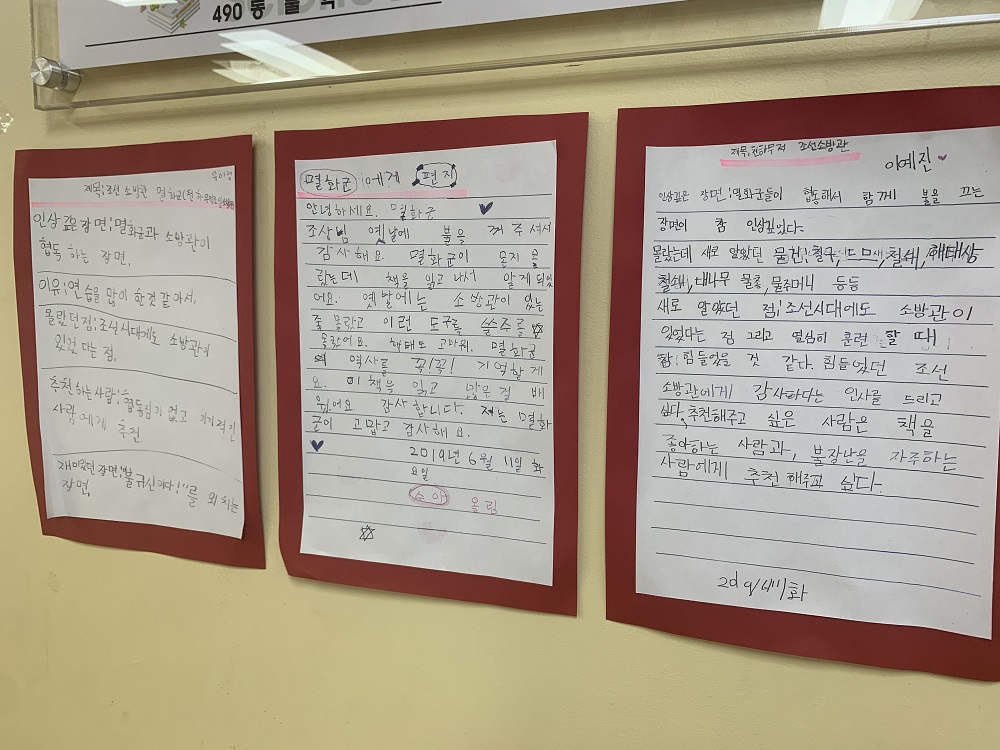 490 동물
제목;조선 소방관 멸화군
인상 깊은 장면;멸화군과 소방관이
협동 하는 장면.
이유;연습을 많이 한것 같아서.
몰랐던점;조선시대에도 소방관이
있었 다는 점.
추천하는사람;협동심이 없고 이기적인
사람 에게 추천
재미있었던 장면;"불귀신이다!"를 외치는
장면.
멸화군 에게 편지
안녕하세요. 멸화군
조상님 옛날에 불을 꺼 주셔서
감사해요 멸화군이
랐는데 책을 읽고 나서 알게되었
어요. 옛날에는 소방관이 있는
줄 몰랐고 이런 도구를 쓴주를
몰랐어요. 해태도 고마워. 멸화군
의 역사를 꼭!꼭! 기억할게
요. 이 책을 읽고 많은걸 배
웠어요 감사 합니다. 저는 멸화
군이 고맙고 감사해요.
2019년 6월 11일 화
요일
수아 올림
제목; 조선소방관
이예진
인상깊은 장면;멸화군들이 협동해서 함께 불을 끄는
장면이 참 인상깊었다.
몰랐는데 새로 알았던 물건; 철쇄, 해태상
철쇄, 대나무 물총, 물주머니 등등
새로 알았던 점;조선시대에도 소방관이
있었다는 점 그리고 열심히 훈련 할 때
참 힘들었을 것 같다. 힘들었던 조선
소방관에게 감사하다는 인사를 드리고
싶다. 추천해주고 싶은 사람은 책을
좋아하는 사람과, 불장난을 자주하는
사람에게 추천 해주고 싶다.